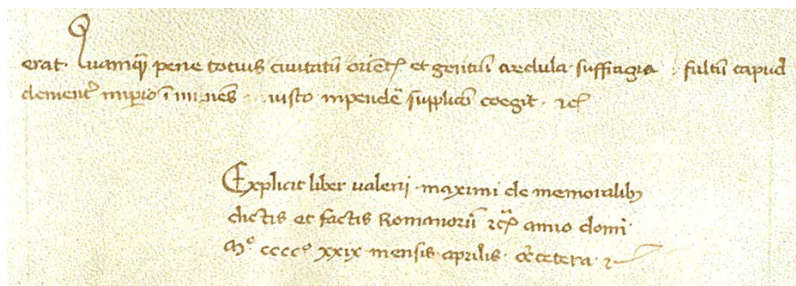 erat. Quamq̄ pene totius ciuitatū oriēt₎ et gentiū credula suffragia fultū capud
clement̄ imperio īminēs iusto inpendē supplicō coegit. ⁊c̄
Explicit liber valerii maximi de memoralibȝ
dictis et factis Romanorū ⁊cr̄ anno domi
Mº ccccº xxix mensis aprilis et cetera ⁊